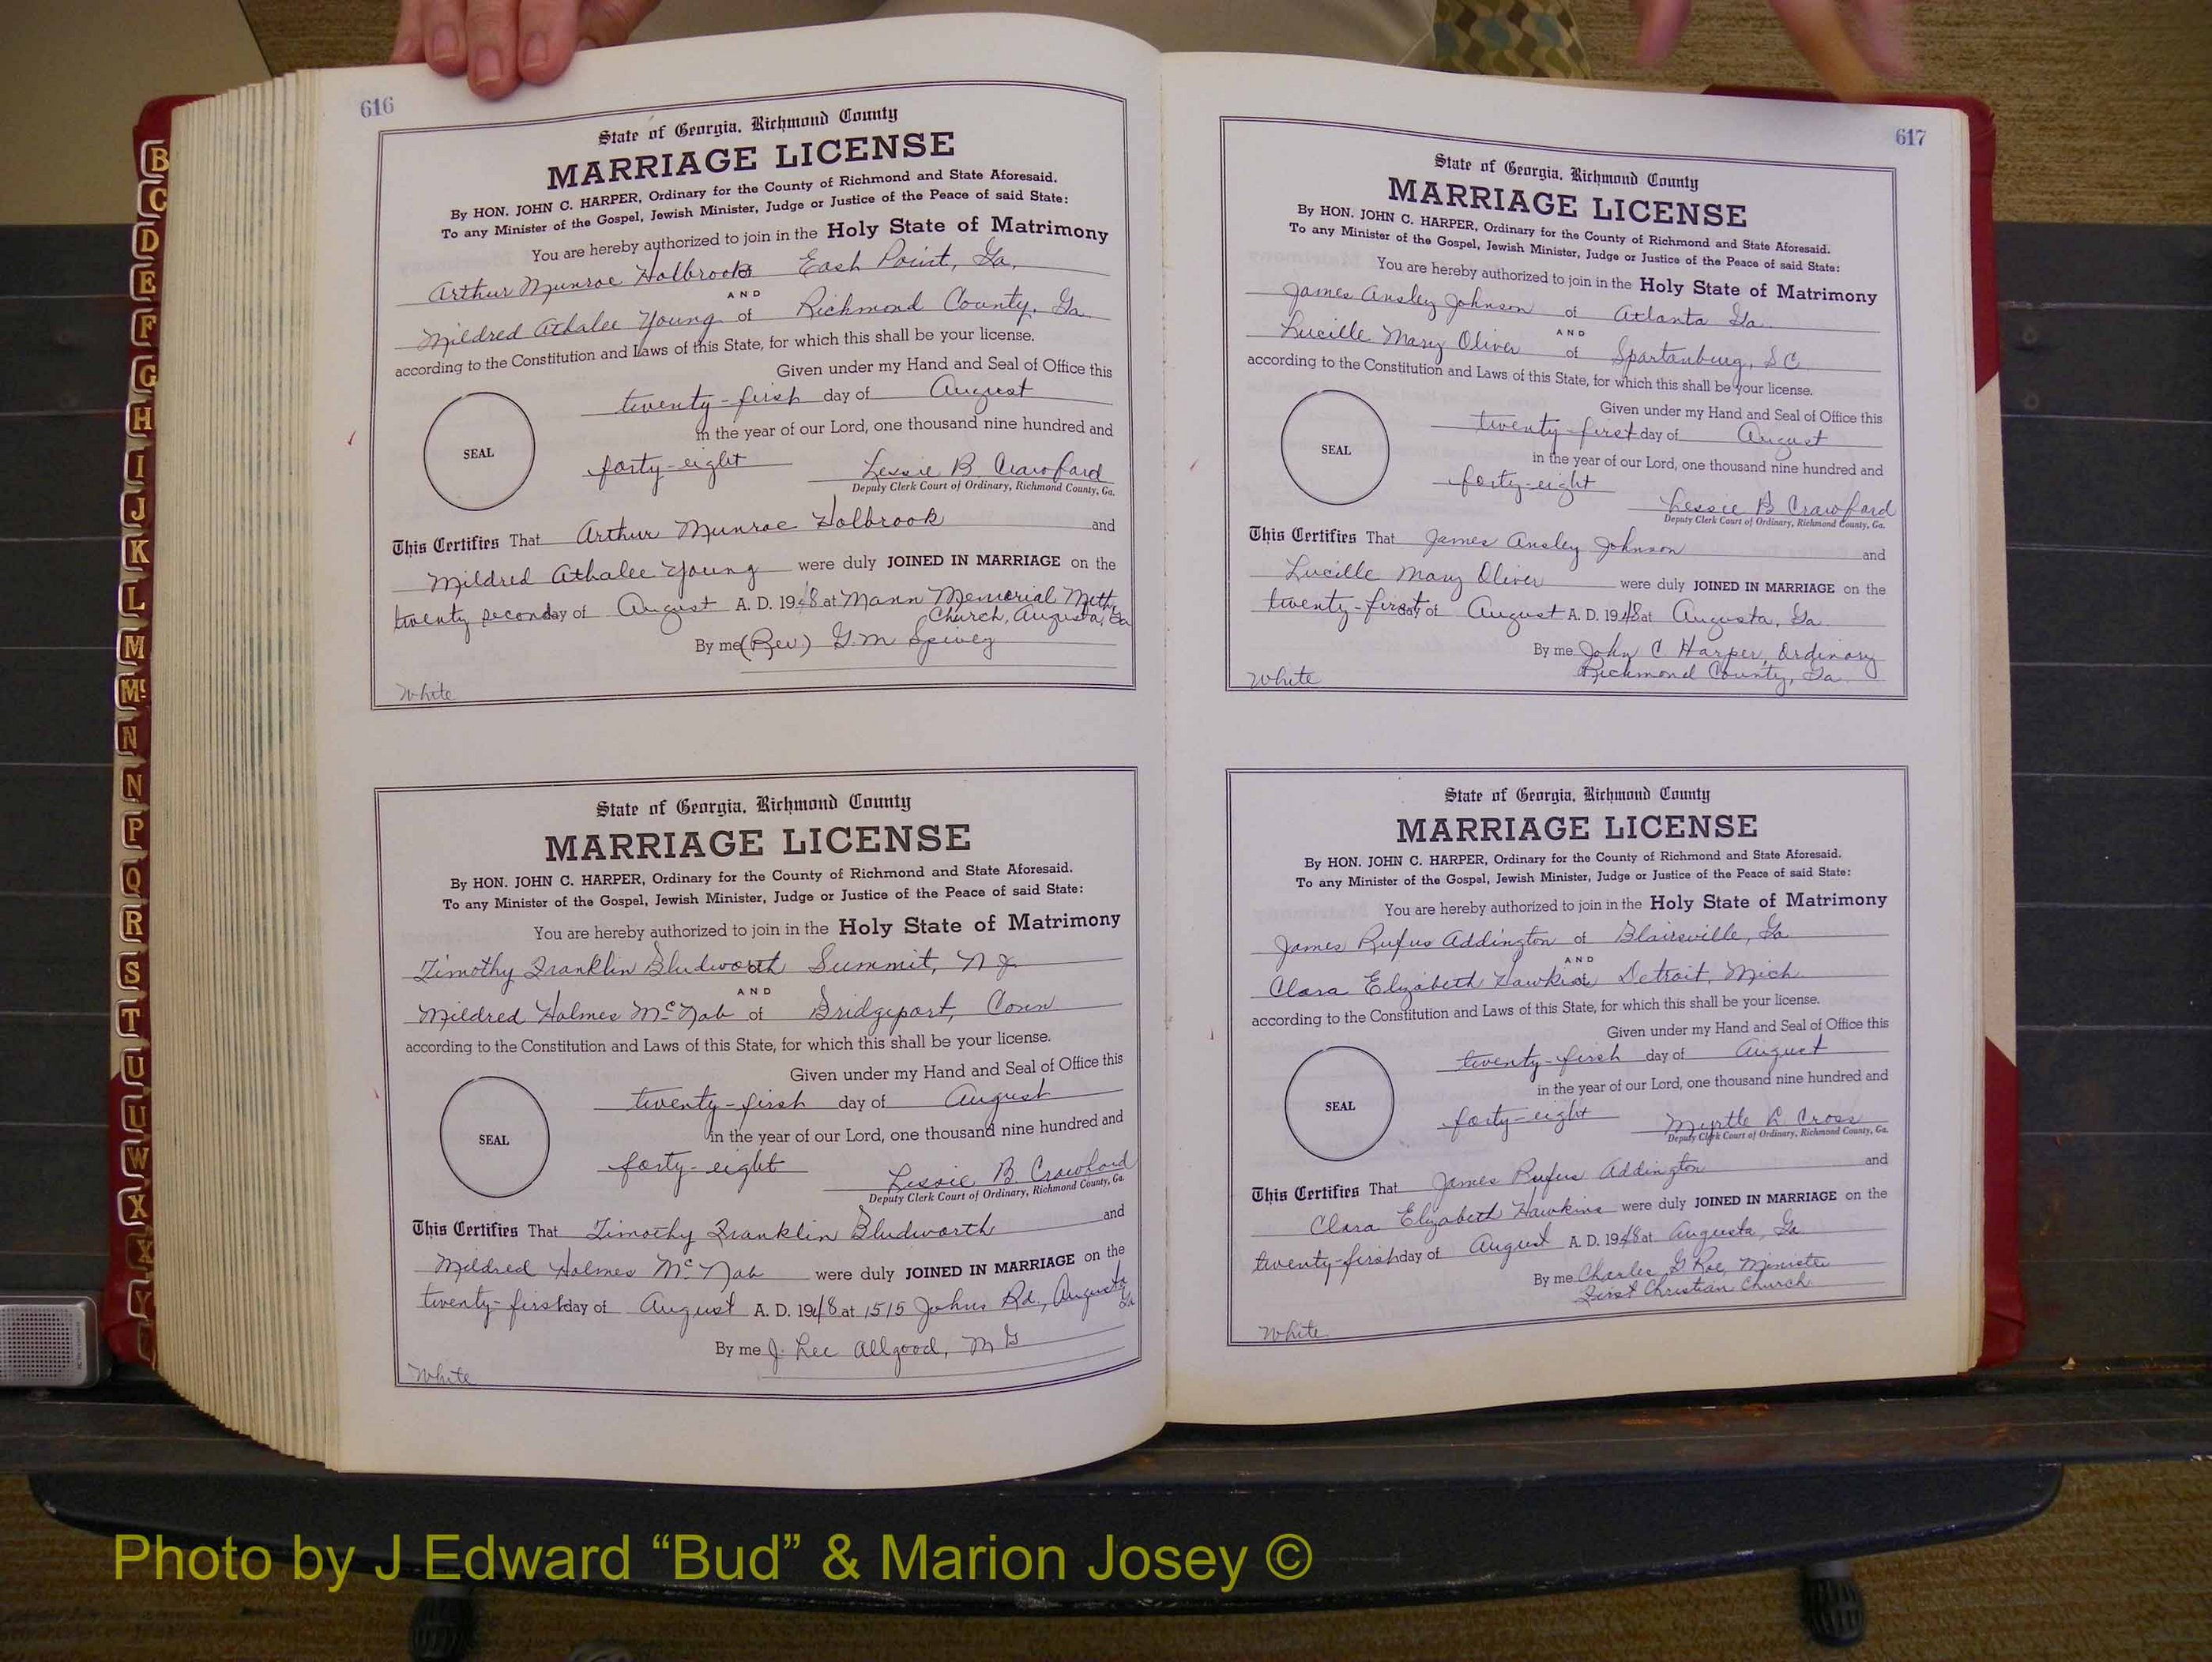 616
State of Georgia, Richmond County
MARRIAGE LICENSE
By HON. JOHN C. HARPER, Ordinary for the County of Richmond and State Aforesaid.
To any Minister of the Gospel, Jewish Minister, Judge or Justice of the Peace of said State:
You are hereby authorized to join in the Holy State of Matrimony
Arthur Munroe Holbrook of East Point, Ga.
AND
Mildred Athalee Young of Richmond County, Ga.
according to the Constitution and Laws of this State, for which this shall be your license.
Given under my Hand and Seal of Office this
twenty-first day of August
in the year of our Lord, one thousand nine hundred and
SEAL
forty-eight Lessie B. Crawford
Deputy Clerk Court of Ordinary, Richmond County, Ga.
This Certifies That Arthur Munroe Holbrook and
Mildred Athalee Young were duly JOINED IN MARRIAGE on the
twenty second day of August A. D. 1948 at Mann Memorial Meth.
Church, Augusta, Ga
By me (Rev.) G. M. Spivey
White
State of Georgia, Richmond County
MARRIAGE LICENSE
By HON. JOHN C. HARPER, Ordinary for the County of Richmond and State Aforesaid.
To any Minister of the Gospel, Jewish Minister, Judge or Justice of the Peace of said State:
You are hereby authorized to join in the Holy State of Matrimony
Timothy Franklin Bludworth of Summit, N J
AND
Mildred Holmes McNab of Bridgeport, Conn
according to the Constitution and Laws of this State, for which this shall be your license.
Given under my Hand and Seal of Office this
twenty-first day of August
in the year of our Lord, one thousand nine hundred and
SEAL
forty-eight Lessie B. Crawford
Deputy Clerk Court of Ordinary, Richmond County, Ga.
This Certifies That Timothy Franklin Bludworth and
Mildred Holmes McNab were duly JOINED IN MARRIAGE on the
twenty-first day of August A. D. 1948 at 1515 Johns Rd., Augusta
Ga
By me J. Lee Allgood, M G
White
617
State of Georgia, Richmond County
MARRIAGE LICENSE
By HON. JOHN C. HARPER, Ordinary for the County of Richmond and State Aforesaid.
To any Minister of the Gospel, Jewish Minister, Judge or Justice of the Peace of said State:
You are hereby authorized to join in the Holy State of Matrimony
James Ansley Johnson of Atlanta Ga.
AND
Lucille Mary Oliver of Spartanburg, S C
according to the Constitution and Laws of this State, for which this shall be your license.
Given under my Hand and Seal of Office this
twenty-first day of August
in the year of our Lord, one thousand nine hundred and
SEAL
forty-eight Lessie B Crawford
Deputy Clerk Court of Ordinary, Richmond County, Ga.
This Certifies That James Ansley Johnson and
Lucille Mary Oliver were duly JOINED IN MARRIAGE on the
twenty-first day of August A. D. 1948 at Augusta, Ga
By me John C. Harper, Ordinary
Richmond County, Ga.
White
State of Georgia, Richmond County
MARRIAGE LICENSE
By HON. JOHN C. HARPER, Ordinary for the County of Richmond and State Aforesaid.
To any Minister of the Gospel, Jewish Minister, Judge or Justice of the Peace of said State:
You are hereby authorized to join in the Holy State of Matrimony
James Rufus Addington of Blairsville, Ga
AND
Clara Elizabeth Hawkins of Detroit, Mich
according to the Constitution and Laws of this State, for which this shall be your license.
Given under my Hand and Seal of Office this
twenty-first day of August
in the year of our Lord, one thousand nine hundred and
SEAL
forty-eight Myrtle L. Cross
Deputy Clerk Court of Ordinary, Richmond County, Ga.
This Certifies That James Rufus Addington and
Clara Elizabeth Hawkins were duly JOINED IN MARRIAGE on the
twenty-first day of August A. D. 1948 at Augusta, Ga
By me Charles G Roe, Minister
First Christian Church
White
B
C
D
E
F
G
H
I
J
K
L
M
Mc
N
N
P
Q
R
S
T
U
U
W
X
X
Y
Photo by J Edward “Bud” & Marion Josey ©